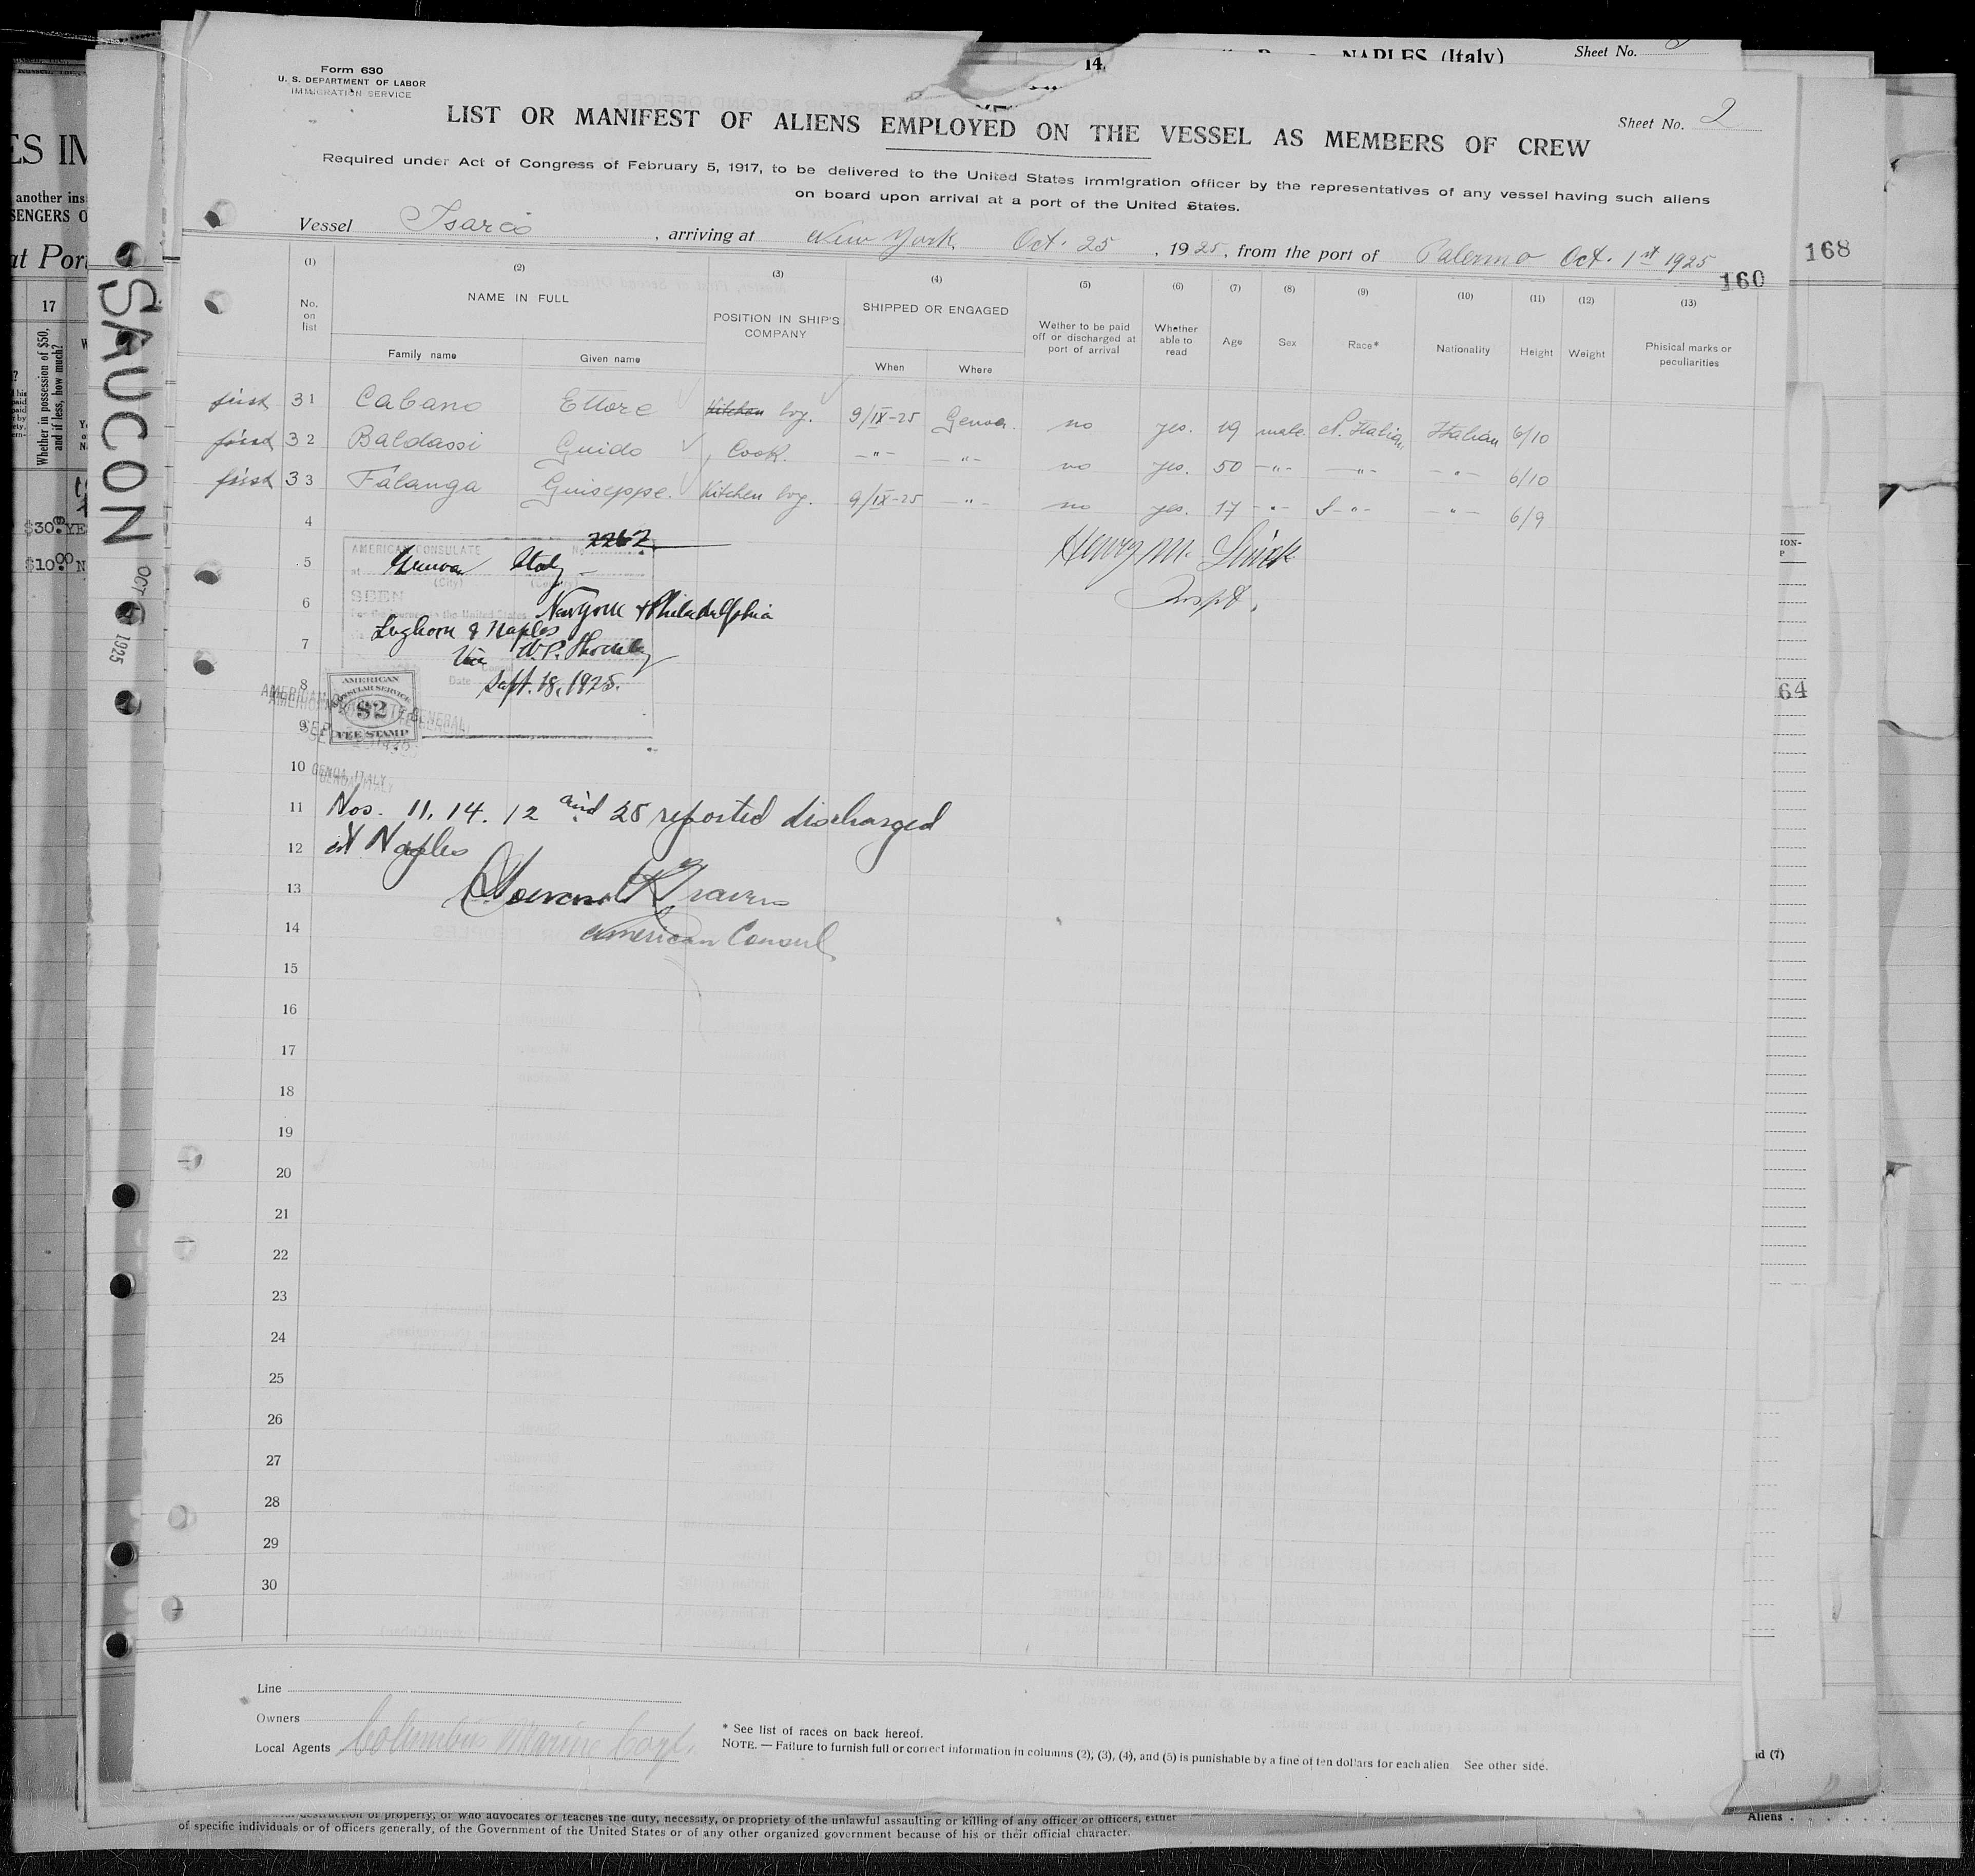 NAPLES (Italy)
Sheet No.
14
Form 630
U. S. DEPARTMENT OF LABOR
IMMIGRATION SERVICE
LIST OR MANIFEST OF ALIENS EMPLOYED ON THE VESSEL AS MEMBERS OF CREW
Sheet No. 2
Required under Act of Congress of February 5, 1917, to be delivered to the United States immigration officer by the representatives of any vessel having such aliens
on board upon arrival at a port of the United States.
Vessel Isarco, arriving at New York Oct. 25, 1925, from the port of Palermo Oct. 1st 1925
160
168
(1) (2) (3) (4) (5) (6) (7) (8) (9) (10) (11) (12) (13)
No. on list
NAME IN FULL
Family name
Given name
POSITION IN SHIP'S COMPANY
SHIPPED OR ENGAGED
When
Where
Wether to be paid off or discharged at port of arrival
Whether able to read
Age
Sex
Race*
Nationality
Height
Weight
Phisical marks or peculiarities
first 31 Cabano Ettore Kitchen boy. 9/IX-25 Genoa. no yes. 19 male. N. Italian Italian 6/10
first 32 Baldassi Guido Cook. -"- -"- no yes. 50 -"- -"- -"- 6/10
first 33 Falanga Guiseppe. Kitchen boy. 9/IX-25 -"- no yes. 17 -"- S-"- -"- 6/9
4
5
6
7
8
9
10
11
12
13
14
15
16
17
18
19
20
21
22
23
24
25
26
27
28
29
30
AMERICAN CONSULATE
No. 2262
at Genoa Italy
(City) (Country)
SEEN
For the journey to the United States
New York & Philadelphia
Leghorn & Naples
Via
Date Sept. 18, 1925.
AMERICAN CONSULAR SERVICE
$2
FEE STAMP
AMERICAN CONSULATE GENERAL
GENOA, ITALY
Henry M.
Inspt.
Nos. 11, 14. 12 and 25 reported discharged
at Naples
American Consul
Line
Owners
Local Agents Columbus Marine
* See list of races on back hereof.
NOTE. — Failure to furnish full or correct information in columns (2), (3), (4), and (5) is punishable by a fine of ten dollars for each alien See other side.
SAUCON
OCT
1925
ES IM
another ins
SENGERS O
at Port
17
Whether in possession of $50, and if less, how much?
$30.00 YE
$10.00 N
64
nd (7)
Aliens
destruction of property, or who advocates or teaches the duty, necessity, or propriety of the unlawful assaulting or killing of any officer or officers, either
of specific individuals or of officers generally, of the Government of the United States or of any other organized government because of his or their official character.